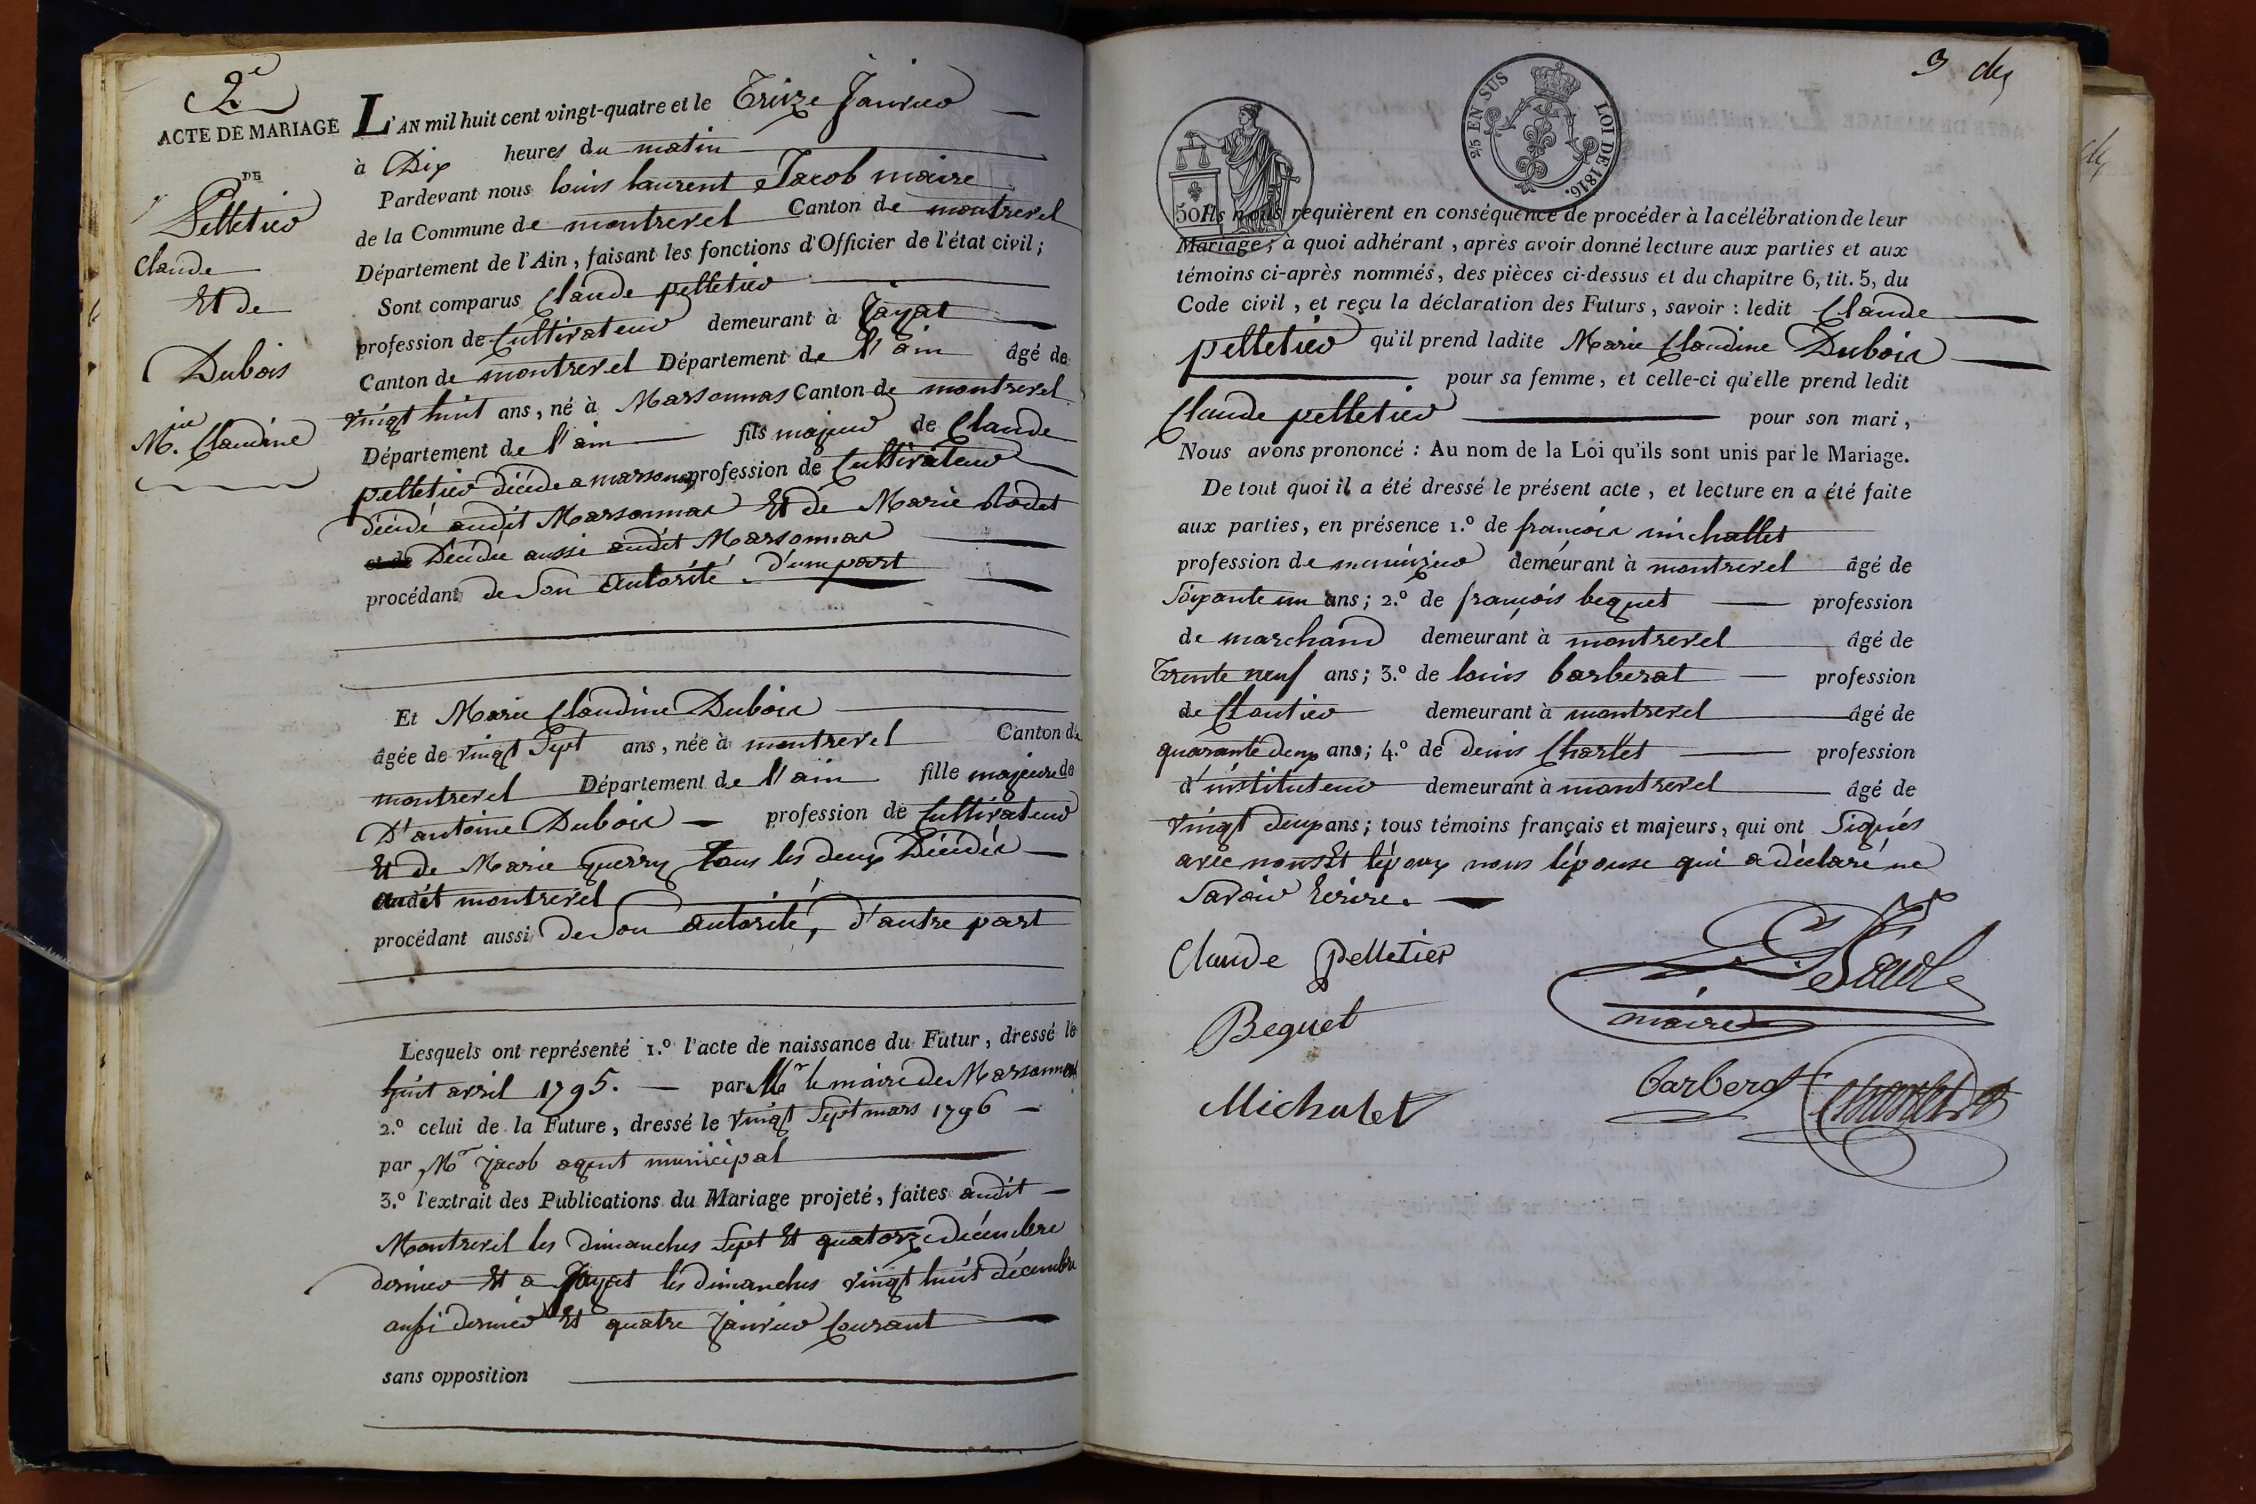 2e
ACTE DE MARIAGE
DE
Pelletier
Claude
Et de
Dubois
M.ie Claudine
L'AN mil huit cent vingt-quatre et le Treize Janvier
à Dix heures du matin
Pardevant nous louis laurent Jacob maire
de la Commune de montrevel Canton de montrevel
Département de l'Ain, faisant les fonctions d'Officier de l'état civil;
Sont comparus Claude pelletier
profession de Cultivateur demeurant à Jayat
Canton de montrevel Département de l'ain âgé de
vingt huit ans, né à Marsonnas Canton de montrevel
Département de l'ain fils majeur de Claude
pelletier décédé a marsonas profession de Cultivateur
décédé audit Marsonnas Et de Marie Rodet
et de Décédée aussi audit Marsonnas
procédant de Son autorité. d'une part
Et Marie Claudine Dubois
âgée de vingt Sept ans, née à montrevel Canton de
montrevel Département de l'ain fille majeure de
D'antoine Dubois profession de Cultivateur
Et de Marie Guerry Tous les deux Décédés
audit montrevel
procédant aussi de Son autorité, d'autre part
Lesquels ont représenté 1.º l'acte de naissance du Futur, dressé le
huit avril 1795. par Mr le maire de Marsonnas
2.º celui de la Future, dressé le vingt Sept mars 1796
par Mr Jacob agent municipal
3.º l'extrait des Publications du Mariage projeté, faites audit
Montrevel les dimanches Sept Et quatorze décembre
dernier Et a Jayat les dimanches vingt huit décembre
aussi dernier Et quatre Janvier Courant
sans opposition
3
25 EN SUS LOI DE 1816.
50
Ils nous requièrent en conséquence de procéder à la célébration de leur
Mariage; à quoi adhérant, après avoir donné lecture aux parties et aux
témoins ci-après nommés, des pièces ci-dessus et du chapitre 6, tit. 5, du
Code civil, et reçu la déclaration des Futurs, savoir: ledit Claude
pelletier qu'il prend ladite Marie Claudine Dubois
pour sa femme, et celle-ci qu'elle prend ledit
Claude pelletier pour son mari,
Nous avons prononcé: Au nom de la Loi qu'ils sont unis par le Mariage.
De tout quoi il a été dressé le présent acte, et lecture en a été faite
aux parties, en présence 1.º de françois michallet
profession de menuizier demeurant à montrevel âgé de
Soixante un ans; 2.º de françois bequet profession
de marchand demeurant à montrevel âgé de
Trente neuf ans; 3.º de louis barberat profession
de Cloutier demeurant à montrevel âgé de
quarante deux ans; 4.º de denis Charlet profession
d'instituteur demeurant à montrevel âgé de
vingt deux ans; tous témoins français et majeurs, qui ont Signés
avec nous Et lépoux nous lépouse qui a déclaré ne
Savoir Ecrire.
Claude Pelletier
Jacob
maire
Bequet
Barberat
Charlet
Michalet